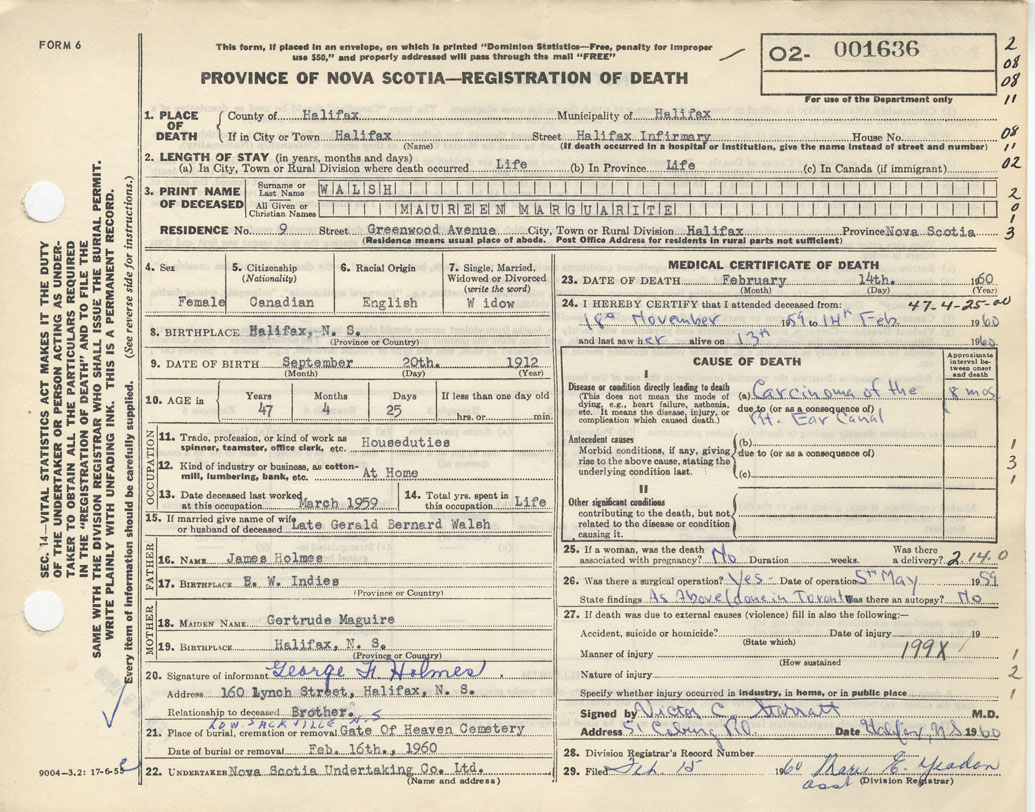 FORM 6
This form, if placed in an envelope, on which is printed "Dominion Statistics—Free, penalty for improper
use $50," and properly addressed will pass through the mail "FREE"
PROVINCE OF NOVA SCOTIA—REGISTRATION OF DEATH
02- 001636
For use of the Department only
2
08
08
11
08
11
02
2
0
1
3
SEC. 14—VITAL STATISTICS ACT MAKES IT THE DUTY
OF THE UNDERTAKER OR PERSON ACTING AS UNDER-
TAKER TO OBTAIN ALL THE PARTICULARS REQUIRED
IN THE "REGISTRATION OF DEATH" AND TO FILE THE
SAME WITH THE DIVISION REGISTRAR WHO SHALL ISSUE THE BURIAL PERMIT.
WRITE PLAINLY WITH UNFADING INK. THIS IS A PERMANENT RECORD.
Every item of information should be carefully supplied. (See reverse side for instructions.)
1. PLACE OF DEATH
County of Halifax Municipality of Halifax
If in City or Town Halifax Street Halifax Infirmary House No.
(Name) (If death occurred in a hospital or institution, give the name instead of street and number)
2. LENGTH OF STAY (in years, months and days)
(a) In City, Town or Rural Division where death occurred Life (b) In Province Life (c) In Canada (if immigrant)
3. PRINT NAME OF DECEASED
Surname or Last Name WALSH
All Given or Christian Names MAUREEN MARGUARITE
RESIDENCE No. 9 Street Greenwood Avenue City, Town or Rural Division Halifax Province Nova Scotia
(Residence means usual place of abode. Post Office Address for residents in rural parts not sufficient)
4. Sex
Female
5. Citizenship
(Nationality)
Canadian
6. Racial Origin
English
7. Single, Married,
Widowed or Divorced
(write the word)
W idow
8. BIRTHPLACE Halifax, N. S.
(Province or Country)
9. DATE OF BIRTH September 20th. 1912
(Month) (Day) (Year)
10. AGE in Years 47 Months 4 Days 25 If less than one day old
hrs. or min.
OCCUPATION
11. Trade, profession, or kind of work as
spinner, teamster, office clerk, etc. Houseduties
12. Kind of industry or business, as cotton-
mill, lumbering, bank, etc. At Home
13. Date deceased last worked
at this occupation March 1959
14. Total yrs. spent in
this occupation Life
15. If married give name of wife
or husband of deceased Late Gerald Bernard Walsh
FATHER
16. NAME James Holmes
17. BIRTHPLACE B. W. Indies
(Province or Country)
MOTHER
18. MAIDEN NAME Gertrude Maguire
19. BIRTHPLACE Halifax, N. S.
(Province or Country)
20. Signature of informant George F. Holmes.
Address 160 Lynch Street, Halifax, N. S.
Relationship to deceased Brother.
LOW. SACKVILLE N.S
21. Place of burial, cremation or removal Gate Of Heaven Cemetery
Date of burial or removal Feb. 16th., 1960
9004—3.2: 17-6-53
22. UNDERTAKER Nova Scotia Undertaking Co. Ltd.
(Name and address)
MEDICAL CERTIFICATE OF DEATH
23. DATE OF DEATH February 14th. 1960
(Month) (Day) (Year)
24. I HEREBY CERTIFY that I attended deceased from: 47-4-25-00
18th November 1959 to 14th Feb. 1960
and last saw her alive on 13th 1960.
CAUSE OF DEATH
Approximate
interval be-
tween onset
and death
I
Disease or condition directly leading to death
(This does not mean the mode of
dying, e.g., heart failure, asthenia,
etc. It means the disease, injury, or
complication which caused death.)
(a) Carcinoma of the 8 mos
due to (or as a consequence of)
Rt. Ear Canal
Antecedent causes
Morbid conditions, if any, giving
rise to the above cause, stating the
underlying condition last.
(b)
due to (or as a consequence of)
(c)
1
3
1
II
Other significant conditions
contributing to the death, but not
related to the disease or condition
causing it.
25. If a woman, was the death
associated with pregnancy? No Duration weeks. Was there
a delivery? 2.14.0
26. Was there a surgical operation? Yes - Date of operation 5th May 1959
State findings As Above (done in Toronto Was there an autopsy? No
27. If death was due to external causes (violence) fill in also the following:—
Accident, suicide or homicide? Date of injury 19
(State which)
Manner of injury 199X 1
(How sustained
Nature of injury 2
Specify whether injury occurred in industry, in home, or in public place 1
Signed by Victor C. Starratt M.D.
Address 5 Coburg Rd. Date Halifax, N.S. 1960
28. Division Registrar's Record Number
29. Filed Feb. 15 1960 Marie E. Yeadon
asst (Division Registrar)